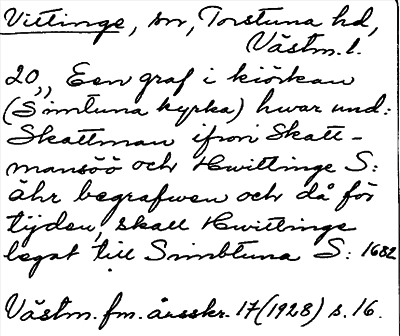 Vittinge, sn, Torstuna hd,
Västm. l.
20,, Een graf i kiörkan
(Simtuna kyrka) hwar und:
Skattman ifrån Skatt-
mansöö och Hwittinge S:
ähr begrafwen och då för
tijden, skall Hwittinge
legat till Simbtuna S: 1682
Västm. fm. årsskr. 17 (1928) s. 16.